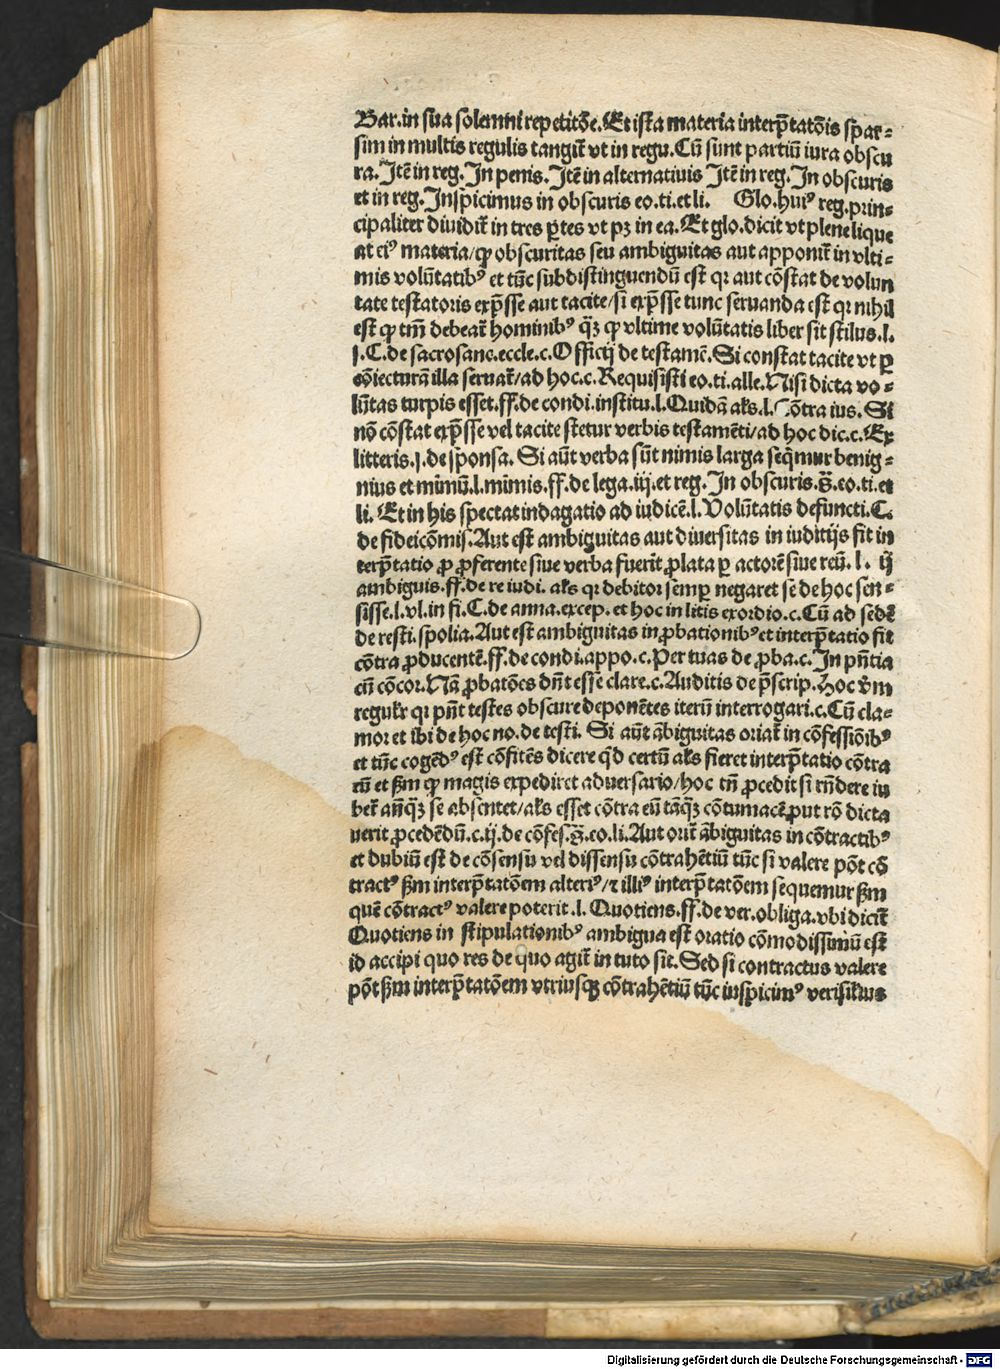 Bar.in sua solemni repetitōe.Et ista materia interp̄tatōis spar⸗
sim in multis regulis tangit̄ vt in regu.Cū sunt partiū iura obscu
ra.Itē in reg.In penis.Itē in alternativis Itē in reg.In obscuris
et in reg.Inspicimus in obscuris eo.ti.et li. Glo.huiꝰ reg.prin⸗
cipaliter dividit̄ in tres ꝑtes vt pꝫ in ea.Et glo.dicit vt plene lique
at eiꝰ materia/ꝙ obscuritas seu ambiguitas aut apponit̄ in vlti⸗
mis volūtatibꝰ et tūc subdistinguendū est qꝛ aut cōstat de volun
tate testatoris exp̄sse aut tacite/si exp̄sse tunc seruanda est qꝛ nihil
est ꝙ tm̄ debeat̄ hominibꝰ q̄ꝫ ꝙ vltime volūtatis liber sit stilus.l.
j.C.de sacrosanc.eccle.c.Officij de testamē.Si constat tacite vt ꝑ
cōiecturā illa seruat̄/ad hoc.c.Requisisti eo.ti.alle.Nisi dicta vo⸗
lūtas turpis esset.ff.de condi.institu.l.Quidā al's.l.Cōtra ius. Si
nō cōstat exp̄sse vel tacite stetur verbis testamēti/ad hoc dic.c.Ex
litteris.j.de sponsa. Si aūt verba sūt nimis larga seq̄mur benig⸗
nius et mīmū.l.mīmis.ff.de lega.iij.et reg. In obscuris.s̄.eo.ti.et
li. Et in his spectat indagatio ad iudicē.l.Volūtatis defuncti.C.
de fideicōmis.Aut est ambiguitas aut diuersitas in iuditijs fit in
terp̄tatio ꝓ ꝓferente siue verba fuerit ꝓlata ꝑ actorē siue reū. l. ij
ambiguis.ff.de re iudi. al's qꝛ debitor semꝑ negaret se de hoc sen⸗
sisse.l.vl.in fi.C.de anna.excep. et hoc in litis exordio.c.Cū ad sedē
de resti.spolia.Aut est ambiguitas in ꝓbationibꝰ et interp̄tatio fit
cōtra ꝓducentē.ff.de condi.appo.c.Per tuas de ꝓba.c.In pn̄tia
cū cōcor.Nā ꝓbatōes dn̄t esse clare.c.Auditis de p̄scrip.Hoc v̄m
regul'r qꝛ pn̄t testes obscure deponētes iterū interrogari.c.Cū cla⸗
mor et ibi de hoc no.de testi. Si aūt ābiguitas oriat̄ in cōfessiōibꝰ
et tūc cogēdꝰ est cōfitēs dicere qd' certū al's fieret interp̄tatio cōtra
eū et s̄m ꝙ magis expediret adversario/hoc tn̄ ꝓcedit si rn̄dere iu
bet̄ an̄q̄ꝫ se absentet/al's esset cōtra eū tāq̄ꝫ cōtumacē ꝓut rō dicta
uerit ꝓcedēdū.c.ij.de cōfes.s̄.eo.li.Aut orit̄ ābiguitas in cōtractibꝰ
et dubiū est de cōsensu vel dissensu cōtrahētiū tūc si valere pōt cō
tractꝰ s̄m interp̄tatōem alteriꝰ/ꝛ illiꝰ interp̄tatōem sequemur s̄m
quē cōtractꝰ valere poterit.l. Quotiens.ff.de ver.obliga.vbi dicit̄
Quotiens in stipulationibꝰ ambigua est oratio cōmodissimū est
id accipi quo res de quo agit̄ in tuto sit.Sed si contractus valere
pōt s̄m interp̄tatōem vtriusqꝫ cōtrahētiū tūc inspicimꝰ verisil'ius
Digitalisierung gefördert durch die Deutsche Forschungsgemeinschaft - DFG